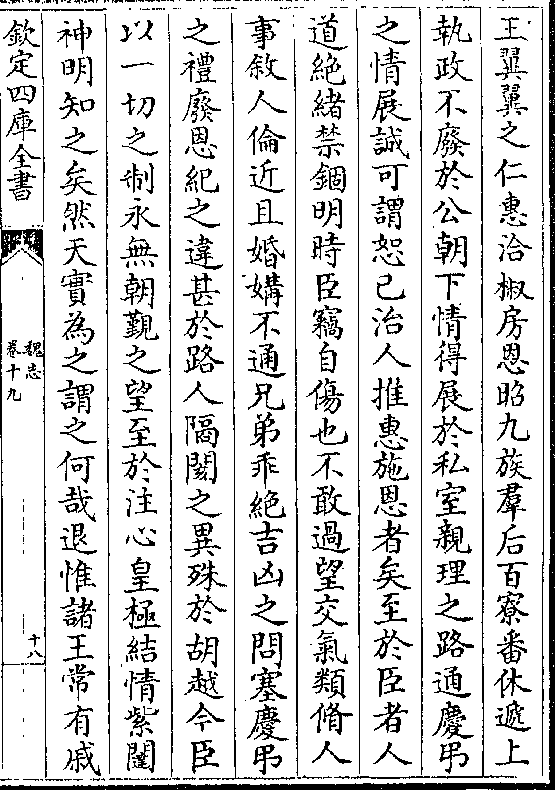 王翼翼之仁惠洽椒房恩昭九族羣后百寮番休遞上
執政不廢於公朝下情得展於私室親理之路通慶弔
之情展誠可謂恕己治人推惠施恩者矣至於臣者人
道絶緒禁錮明時臣竊自傷也不敢過望交氣類脩人
事敘人倫近且婚媾不通兄弟乖絶吉凶之問塞慶弔
之禮廢恩紀之違甚於路人隔閡之異殊於胡越今臣
以一切之制永無朝覲之望至於注心皇極結情紫闥
神明知之矣然天實為之謂之何哉退惟諸王常有戚
欽定四庫全書
魏志
卷十九
十八